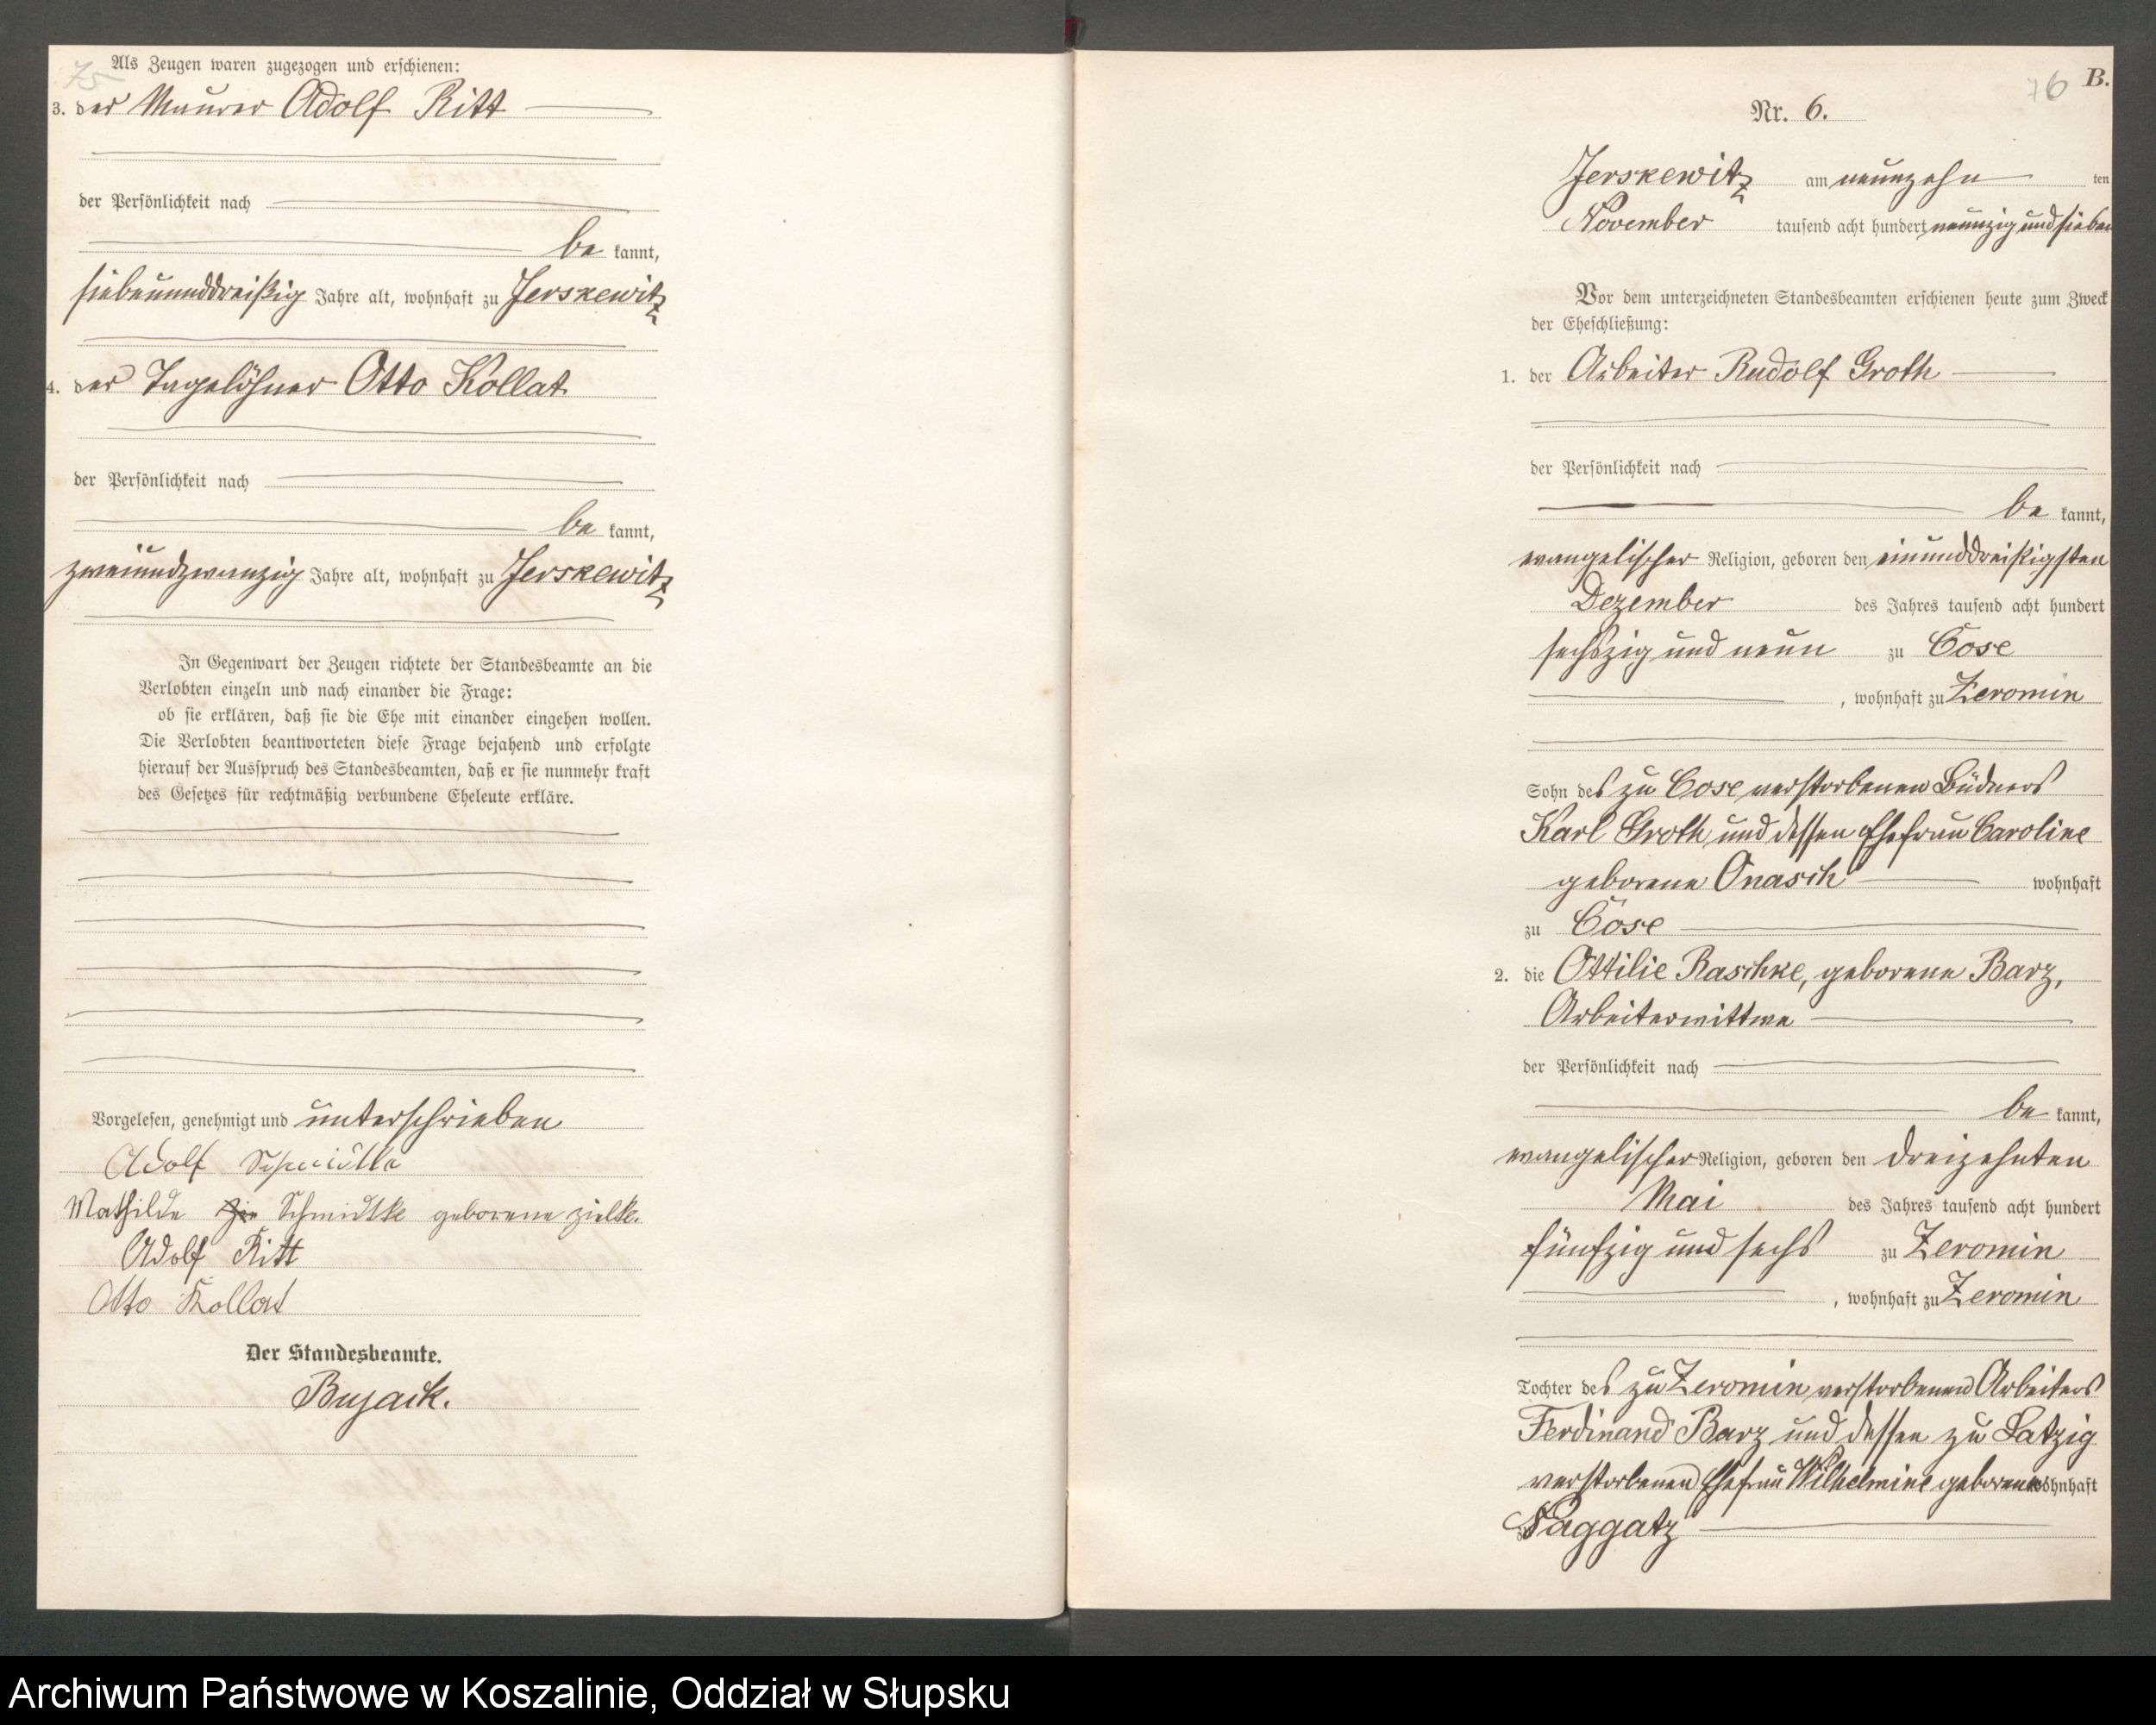 75
Als Zeugen waren zugezogen und erschienen:
3. der Maurer Adolf Ritt
der Persönlichkeit nach
be kannt,
siebenunddreißig Jahre alt, wohnhaft zu Jerskewitz
4. der Tagelöhner Otto Kollat
der Persönlichkeit nach
be kannt,
zweiundzwanzig Jahre alt, wohnhaft zu Jerskewitz
In Gegenwart der Zeugen richtete der Standesbeamte an die
Verlobten einzeln und nach einander die Frage:
ob sie erklären, daß sie die Ehe mit einander eingehen wollen.
Die Verlobten beantworteten diese Frage bejahend und erfolgte
hierauf der Ausspruch des Standesbeamten, daß er sie nunmehr kraft
des Gesetzes für rechtmäßig verbundene Eheleute erkläre.
Vorgelesen, genehmigt und unterschrieben
Adolf
Mathilde Schmidtke geborene Zielke.
Adolf Ritt
Otto Kollat
Der Standesbeamte.
Bujack.
76 B.
Nr. 6.
Jerskewitz am neunzehn ten
November tausend acht hundert neunzig und sieben
Vor dem unterzeichneten Standesbeamten erschienen heute zum Zweck
der Eheschließung:
1. der Arbeiter Rudolf Groth
der Persönlichkeit nach
be kannt,
evangelischer Religion, geboren den einunddreißigsten
Dezember des Jahres tausend acht hundert
sechszig und neun zu Cose
, wohnhaft zu Zeromin
Sohn des zu Cose verstorbenen Büdners
Karl Groth und dessen Ehefrau Caroline
geborene Onasch wohnhaft
zu Cose
2. die Ottilie Raschke, geborene Barz,
Arbeiterwittwe
der Persönlichkeit nach
be kannt,
evangelischer Religion, geboren den dreizehnten
Mai des Jahres tausend acht hundert
fünfzig und sechs zu Zeromin
, wohnhaft zu Zeromin
Tochter des zu Zeromin verstorbenen Arbeiters
Ferdinand Barz und dessen zu Latzig
verstorbenen Ehefrau Wilhelmine geborene wohnhaft
zu Naggatz
Archiwum Państwowe w Koszalinie, Oddział w Słupsku